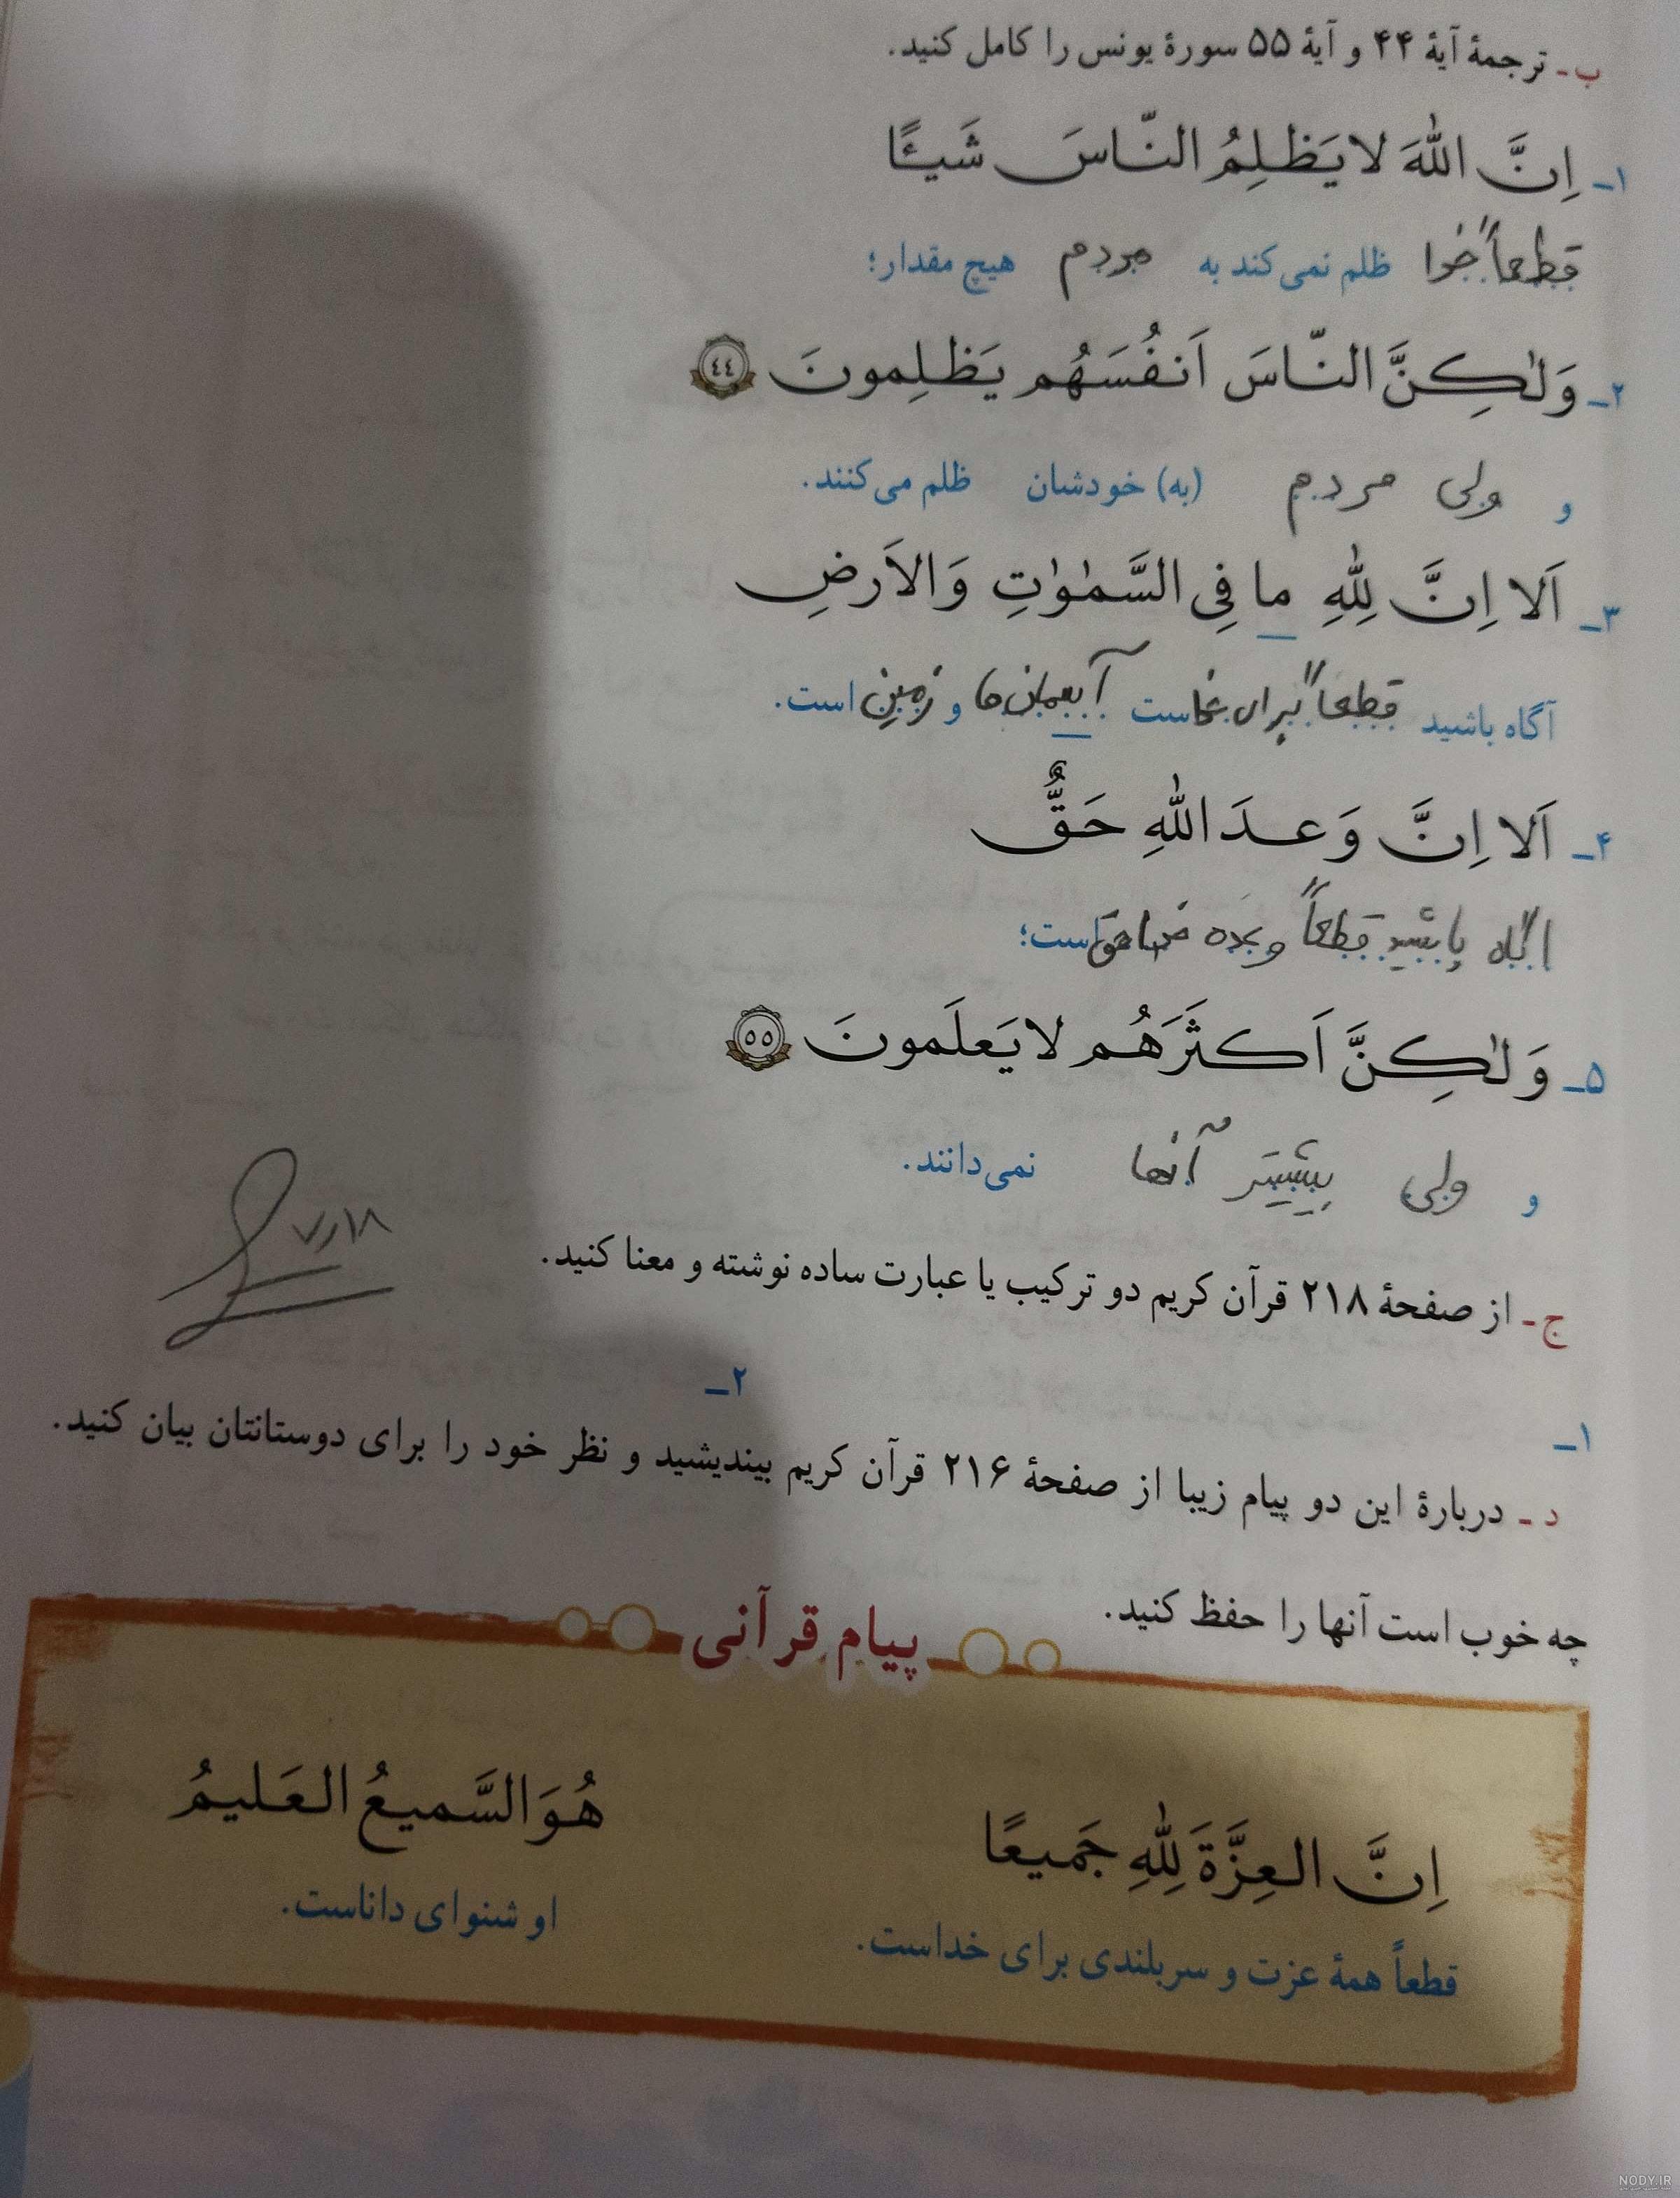 ب - ترجمهٔ آیهٔ ۴۴ و آیهٔ ۵۵ سورهٔ یونس را کامل کنید.
۱- اِنَّ اللّٰهَ لا یَظلِمُ النّاسَ شَیـًٔا
قطعاً خدا ظلم نمی‌کند به مردم هیچ مقدار؛
۲- وَلٰکِنَّ النّاسَ اَنفُسَهُم یَظلِمونَ ٤٤
و ولی مردم (به) خودشان ظلم می‌کنند.
۳- اَلا اِنَّ لِلّٰهِ ما فِی السَّمٰوٰتِ وَالاَرضِ
آگاه باشید قطعاً برای خداست آسمان‌ها و زمین است.
۴- اَلا اِنَّ وَعدَ اللّٰهِ حَقٌّ
اگاه باشید قطعاً وعده خدا حق است؛
۵- وَلٰکِنَّ اَکثَرَهُم لا یَعلَمونَ ٥٥
و ولی بیشتر آنها نمی‌دانند.
۷٫۱۸
ج - از صفحهٔ ۲۱۸ قرآن کریم دو ترکیب یا عبارت ساده نوشته و معنا کنید.
۱- ۲-
د - دربارهٔ این دو پیام زیبا از صفحهٔ ۲۱۶ قرآن کریم بیندیشید و نظر خود را برای دوستانتان بیان کنید.
چه خوب است آنها را حفظ کنید.
پیام قرآنی
اِنَّ العِزَّةَ لِلّٰهِ جَمیعًا هُوَ السَّمیعُ العَلیمُ
قطعاً همهٔ عزت و سربلندی برای خداست. او شنوای داناست.
NODY.IR